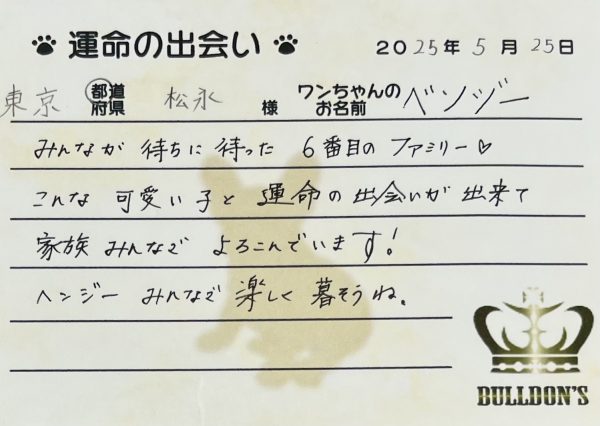 運命の出会い
2025年5月25日
東京 都道府県 松永 様 ワンちゃんのお名前 ベンジー
みんなが 待ちに 待った 6番目の ファミリー♡
こんな 可愛い 子と 運命の 出会いが 出来て
家族 みんなで よろこんでいます!
ヘンジー みんなで 楽しく 暮そうね。
BULLDON'S